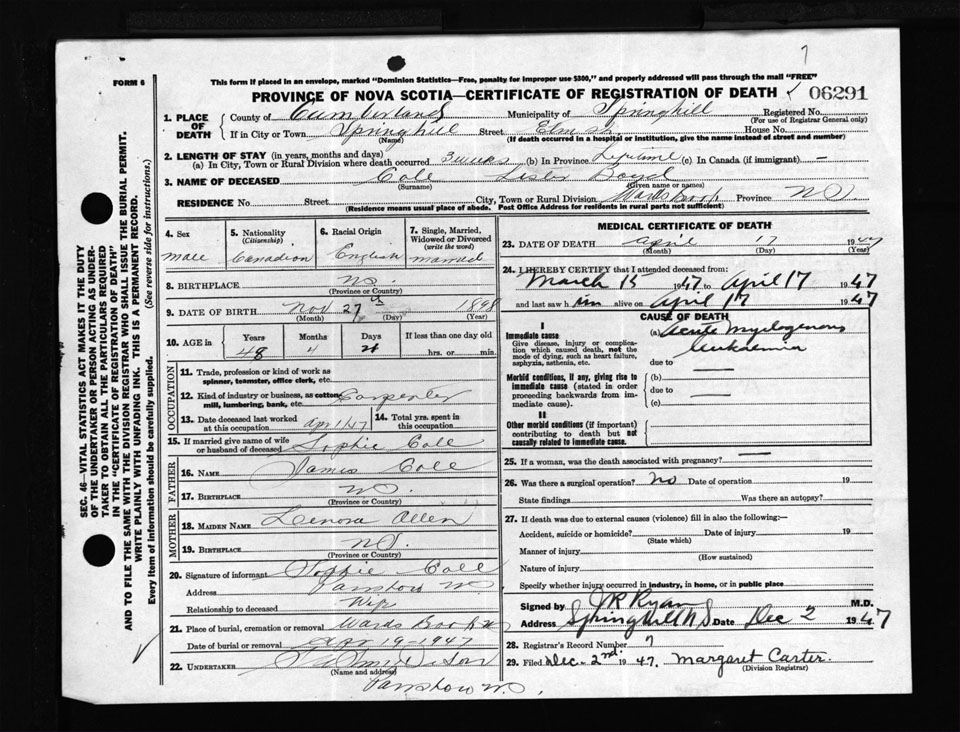 7
FORM 6
This form if placed in an envelope, marked "Dominion Statistics—Free, penalty for improper use $300," and properly addressed will pass through the mail "FREE"
PROVINCE OF NOVA SCOTIA—CERTIFICATE OF REGISTRATION OF DEATH
06291
1. PLACE OF DEATH
County of Cumberland Municipality of Springhill Registered No.
(For use of Registrar General only)
If in City or Town Springhill Street Elm St. House No.
(Name) (If death occurred in a hospital or institution, give the name instead of street and number)
2. LENGTH OF STAY (in years, months and days)
(a) In City, Town or Rural Division where death occurred 3 weeks (b) In Province Lifetime (c) In Canada (if immigrant) —
3. NAME OF DECEASED Cole Lester Boyd
(Surname) (Given name or names)
RESIDENCE No. Street City, Town or Rural Division Wards Brook Province N.S.
(Residence means usual place of abode. Post Office Address for residents in rural parts not sufficient)
4. Sex
male
5. Nationality
(Citizenship)
Canadian
6. Racial Origin
English
7. Single, Married, Widowed or Divorced
(write the word)
married
8. BIRTHPLACE N.S.
(Province or Country)
9. DATE OF BIRTH Nov 27th 1898
(Month) (Day) (Year)
10. AGE in Years Months Days If less than one day old
48 4 21 hrs. or min.
OCCUPATION
11. Trade, profession or kind of work as spinner, teamster, office clerk, etc.
12. Kind of industry or business, as cotton mill, lumbering, bank, etc. Carpenter
13. Date deceased last worked at this occupation Apr 1/47
14. Total yrs. spent in this occupation
15. If married give name of wife or husband of deceased Sophie Cole
FATHER
16. NAME James Cole
17. BIRTHPLACE N.S.
(Province or Country)
MOTHER
18. MAIDEN NAME Lenora Allen
19. BIRTHPLACE N.S.
(Province or Country)
20. Signature of informant Sophie Cole
Address
Relationship to deceased Wife
21. Place of burial, cremation or removal Wards Brook
Date of burial or removal Apr 19-1947
22. UNDERTAKER & Son
(Name and address)
MEDICAL CERTIFICATE OF DEATH
23. DATE OF DEATH April 17 1947
(Month) (Day) (Year)
24. I HEREBY CERTIFY that I attended deceased from:
March 15 1947 to April 17 1947
and last saw him alive on April 17 1947
CAUSE OF DEATH
I
Immediate cause
Give disease, injury or complication which caused death, not the mode of dying, such as heart failure, asphyxia, asthenia, etc.
(a) Acute Myelogenous
leukaemia
due to —
Morbid conditions, if any, giving rise to immediate cause (stated in order proceeding backwards from immediate cause).
(b)
due to —
(c)
II
Other morbid conditions (if important) contributing to death but not causally related to immediate cause.
25. If a woman, was the death associated with pregnancy? —
26. Was there a surgical operation? No Date of operation 19
State findings Was there an autopsy?
27. If death was due to external causes (violence) fill in also the following:—
Accident, suicide or homicide? Date of injury 19
(State which)
Manner of injury
(How sustained)
Nature of injury
Specify whether injury occurred in industry, in home, or in public place
Signed by J R Ryan M.D.
Address Springhill N S Date Dec 2 1947
28. Registrar's Record Number 7
29. Filed Dec. 2nd. 1947. Margaret Carter.
(Division Registrar)
SEC. 46—VITAL STATISTICS ACT MAKES IT THE DUTY
OF THE UNDERTAKER OR PERSON ACTING AS UNDER-
TAKER TO OBTAIN ALL THE PARTICULARS REQUIRED
IN THE "CERTIFICATE OF REGISTRATION OF DEATH"
AND TO FILE THE SAME WITH THE DIVISION REGISTRAR WHO SHALL ISSUE THE BURIAL PERMIT.
WRITE PLAINLY WITH UNFADING INK. THIS IS A PERMANENT RECORD.
Every item of information should be carefully supplied. (See reverse side for instructions.)